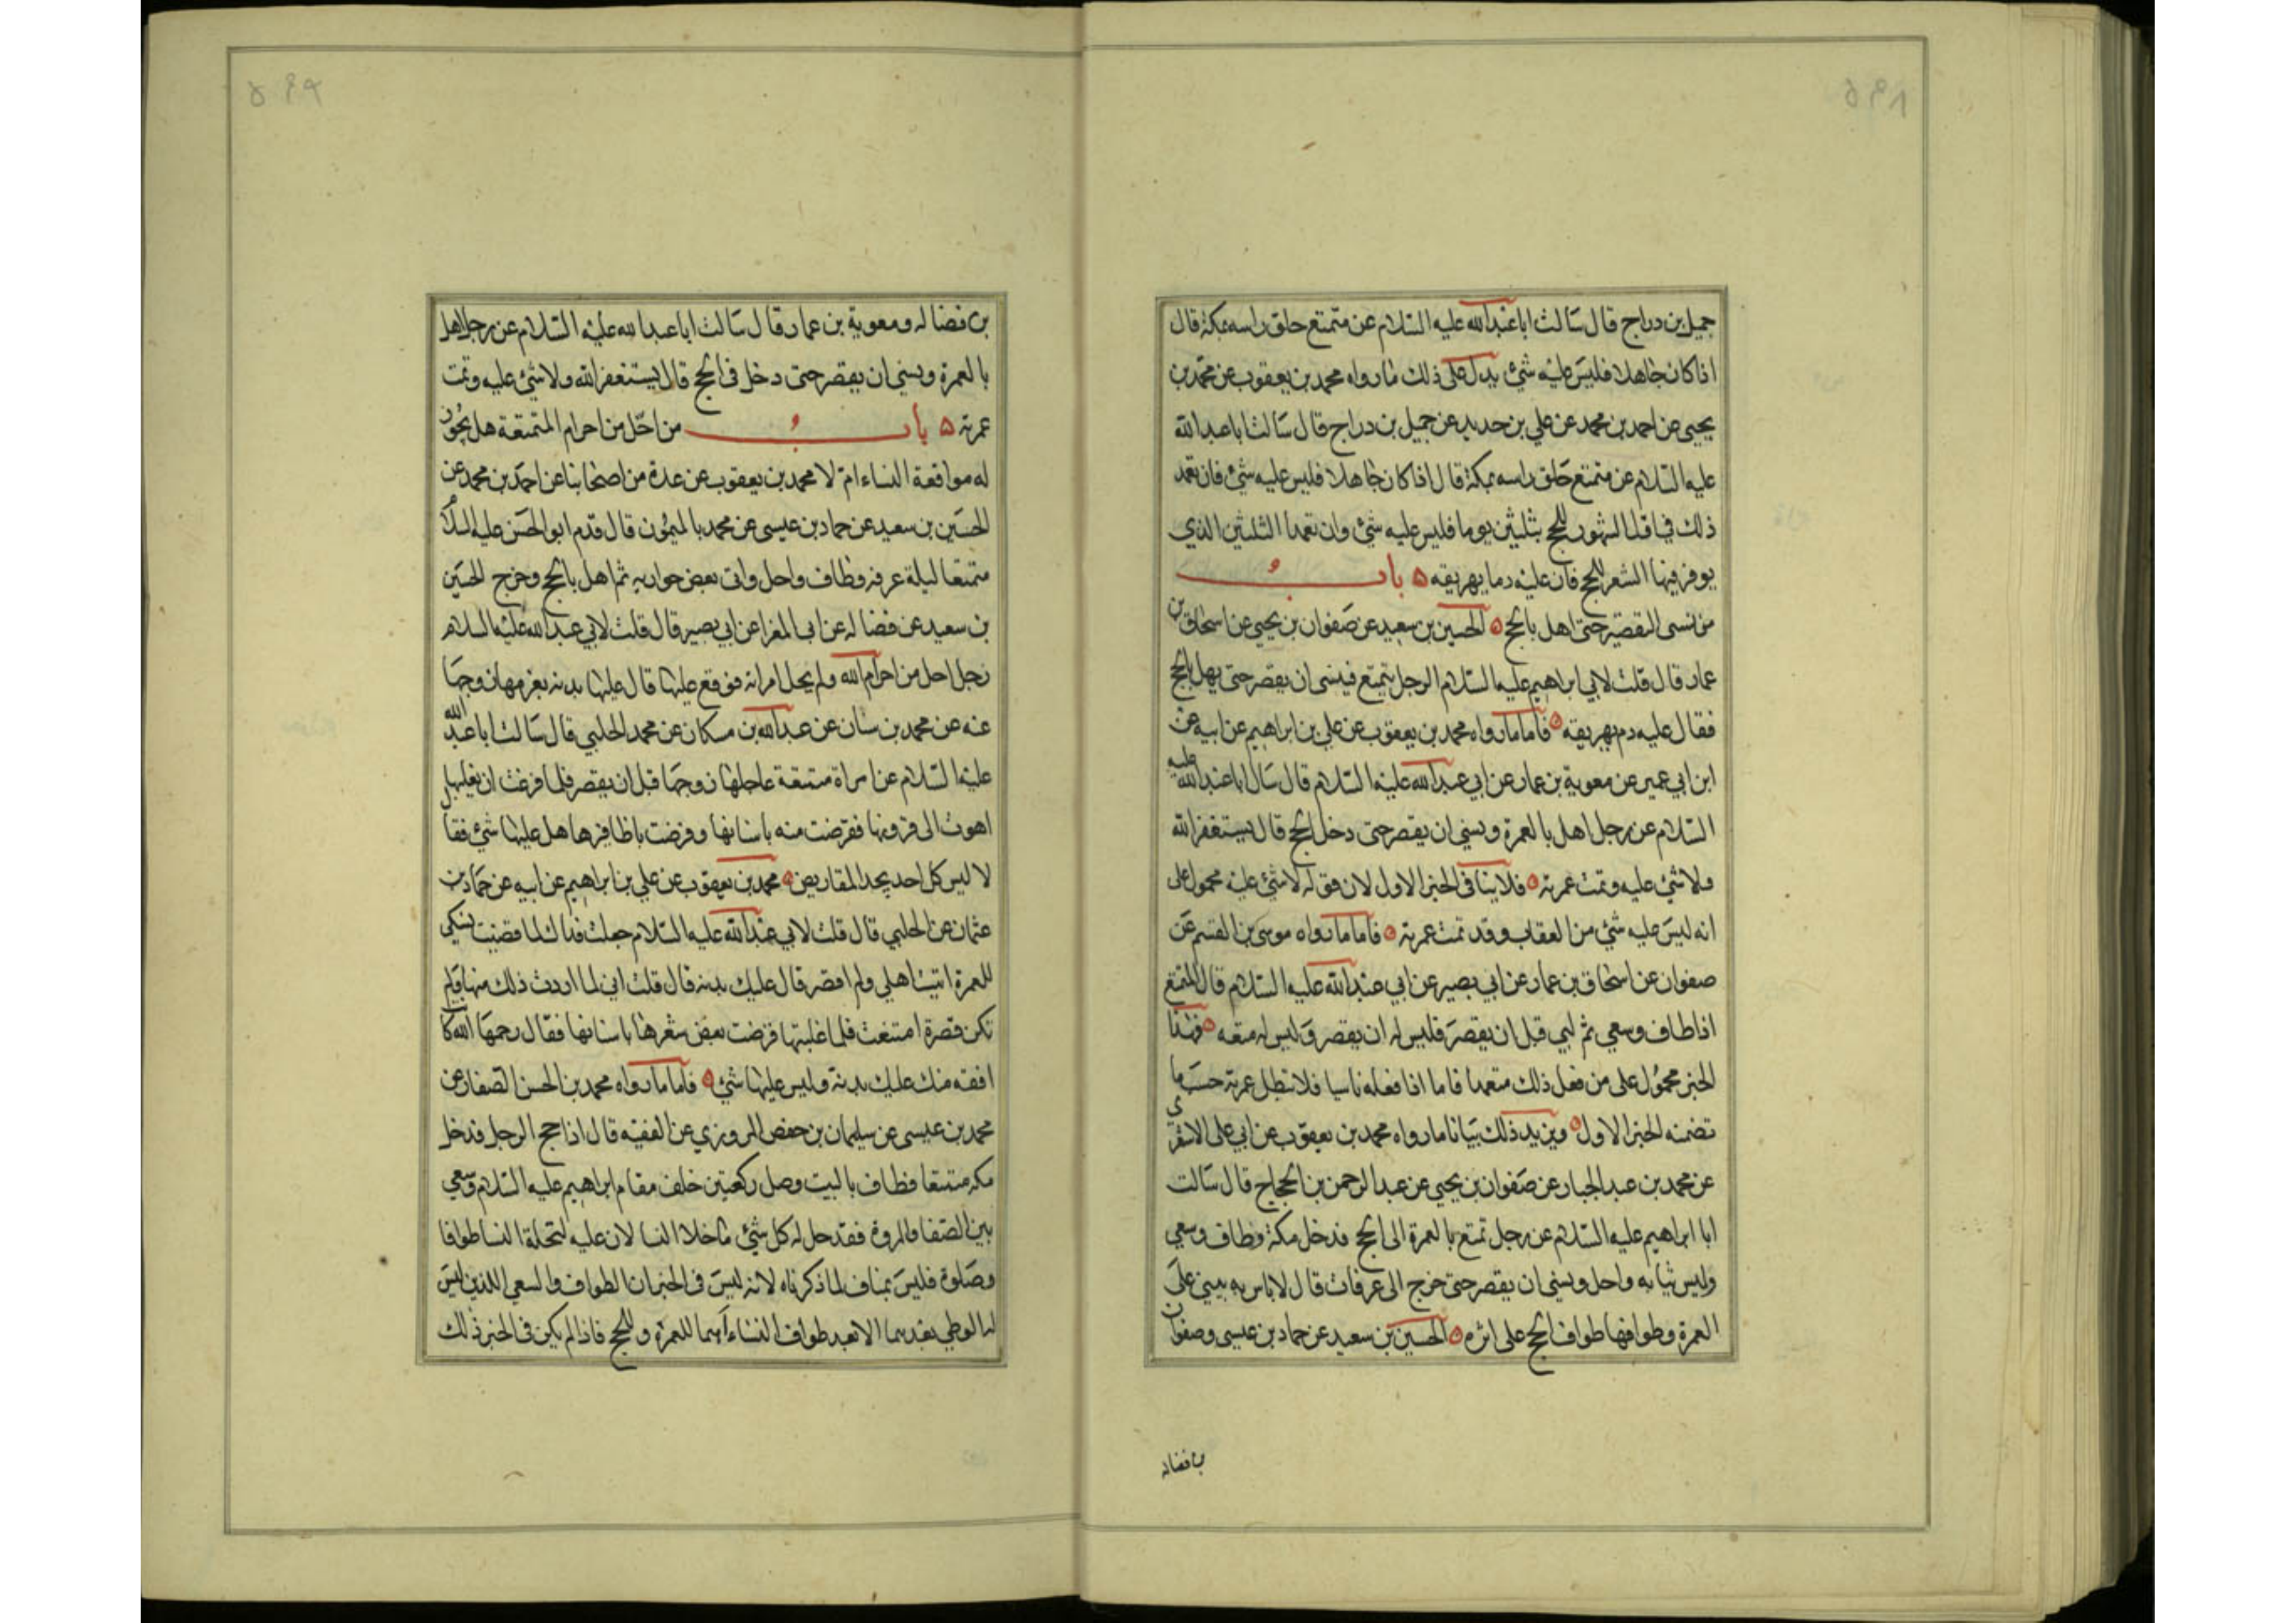 جميل بن دراج قال سالت ابا عبدالله عليه السلام عن متمتع حلق راسه بمكة قال
اذا كان جاهلا فليس عليه شئ يدل على ذلك ما رواه محمد بن يعقوب عن محمد بن
يحيى عن احمد بن محمد عن علي بن حديد عن جميل بن دراج قال سالت ابا عبدالله
عليه السلام عن متمتع حلق راسه بمكة قال اذا كان جاهلا فليس عليه شئ فان تعمد
ذلك في اول الشهور للحج بثلثين يوما فليس عليه شئ وان تعمد الثلثين الذي
يوفر فيها الشعر للحج فان عليه دما يهريقه ه باب
من نسى التقصير حتى اهل بالحج ه الحسين بن سعيد عن صفوان بن يحيى عن اسحاق بن
عمار قال قلت لابي ابراهيم عليه السلام الرجل يتمتع فينسى ان يقصر حتى يهل بالحج
فقال عليه دم يهريقه ه فاما ما رواه محمد بن يعقوب عن علي بن ابراهيم عن ابيه عن
ابن ابي عمير عن معوية بن عمار عن ابي عبدالله عليه السلام قال سال ابا عبدالله عليه
السلام عن رجل اهل بالعمرة ونسي ان يقصر حتى دخل الحج قال يستغفر الله
ولا شئ عليه وتمت عمرته ه فلا ينافى الخبر الاول لان قوله لا شئ عليه محمول على
انه ليس عليه شئ من العقاب وقد تمت عمرته ه فاما ما رواه موسى بن القسم عن
صفوان عن اسحاق بن عمار عن ابي بصير عن ابي عبدالله عليه السلام قال المتمتع
اذا طاف وسعي ثم لبي قبل ان يقصر فليس له ان يقصر وليس له متعه ه فهذا
الخبر محمول على من فعل ذلك متعمدا فاما اذا فعله ناسيا فلا تبطل عمرته حسب ما
تضمنه الخبر الاول ه ويزيد ذلك بيانا ما رواه محمد بن يعقوب عن ابي على الاشعري
عن محمد بن عبد الجبار عن صفوان بن يحيي عن عبد الرحمن بن الحجاج قال سالت
ابا ابراهيم عليه السلام عن رجل تمتع بالعمرة الى الحج فدخل مكة وطاف وسعي
ولبس ثيابه واحل ونسي ان يقصر حتى خرج الى عرفات قال لا باس به يبني على
العمرة وطوافها طواف الحج على اثره ه الحسين بن سعيد عن حماد بن عيسى وصفوان
بن فضاله
بن فضاله ومعوية بن عمار قال سالت ابا عبدالله عليه السلام عن رجل اهل
بالعمرة ونسي ان يقصر حتى دخل في الحج قال يستغفر الله ولا شئ عليه وتمت
عمرته ه باب من احل من احرام المتمتعة هل يجوز
له مواقعة النساء ام لا محمد بن يعقوب عن عدة من اصحابنا عن احمد بن محمد عن
الحسين بن سعيد عن حماد بن عيسى عن محمد بالميمون قال قدم ابو الحسن عليه السلام
متمتعا ليلة عرفه وطاف واحل واتى بعض جواريه ثم اهل بالحج وخرج الحسين
بن سعيد عن فضاله عن ابى المغرا عن ابي بصير قال قلت لابي عبدالله عليه السلام
رجل احل من احرام الله ولم يحل امراته فوقع عليها قال عليها بدنه يغرمها زوجها
عنه عن محمد بن سنان عن عبدالله بن مسكان عن محمد الحلبي قال سالت ابا عبد الله
عليه السلام عن امراة متمتعة عاجلها زوجها قبل ان يقصر فلما فرغت ان يغلبها
اهوت الى قرونها فقرضت منه باسنانها وقرضت باظافيرها هل عليها شئ فقال
لا ليس كل احد يجد المقاريض ه محمد بن يعقوب عن علي بن ابراهيم عن ابيه عن حماد بن
عثمان عن الحلبي قال قلت لابي عبدالله عليه السلام جعلت فداك لما قضيت نسكي
للعمرة اتيت اهلي ولم اقصر قال عليك بدنه قال قلت اني لما اردت ذلك منها ولم
تكن قصرة امتنعت فلما غلبتها قرضت بعض شعرها باسنانها فقال رحمها الله كا
افقه منك عليك بدنة وليس عليها شئ ه فاما ما رواه محمد بن الحسن الصفار عن
محمد بن عيسى عن سليمان بن حفص المروزي عن الفقيه قال اذا حج الرجل فدخل
مكه متمتعا فطاف بالبيت وصلى ركعتين خلف مقام ابراهيم عليه السلام وسعي
بين الصفا والمروة فقد حل له كل شئ ما خلا النسا لان عليه لتحلة النسا طوافا
وصلوة فليس بمناف لما ذكرناه لانه ليس فى الخبر ان الطواف والسعي اللذين ليس
له الوطي بعدهما الا بعد طواف النساء انهما للعمرة وللحج فاذا لم يكن فى الخبر ذلك